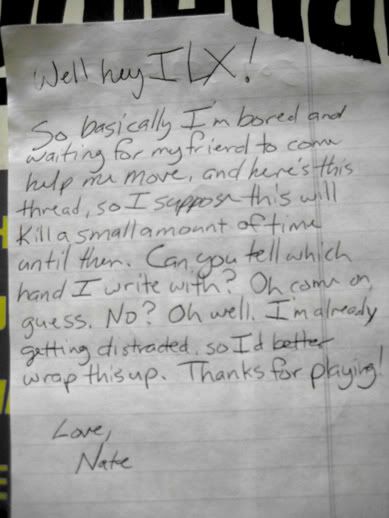 Well hey ILX!
So basically I'm bored and
waiting for my friend to come
help me move, and here's this
thread, so I suppose this will
kill a small amount of time
until then. Can you tell which
hand I write with? Oh come on,
guess. No? Oh well. I'm already
getting distracted, so I'd better
wrap this up. Thanks for playing!
Love,
Nate